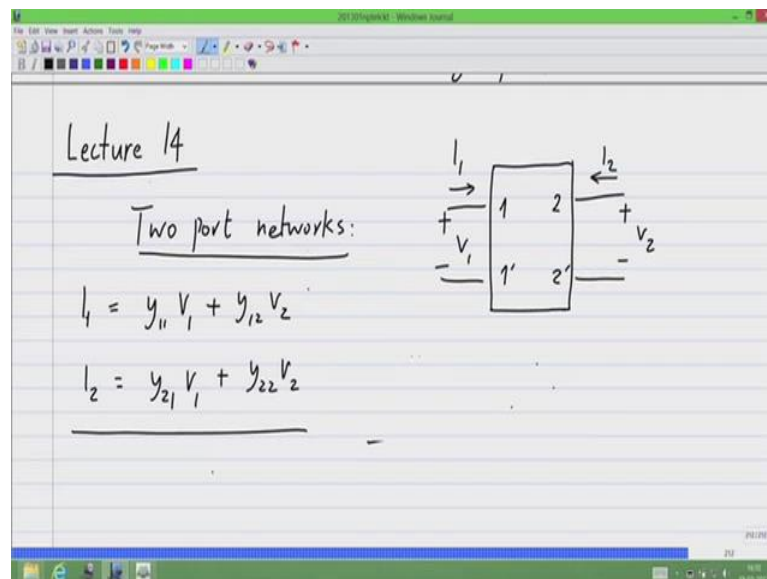 201301nptel.kt - Windows Journal
File Edit View Insert Actions Tools Help
Page Width
B I
Lecture 14
Two port networks:
I₁ = y₁₁ V₁ + y₁₂ V₂
I₂ = y₂₁ V₁ + y₂₂ V₂
I₁ I₂
1 2
+ V₁ - + V₂ -
1' 2'
212